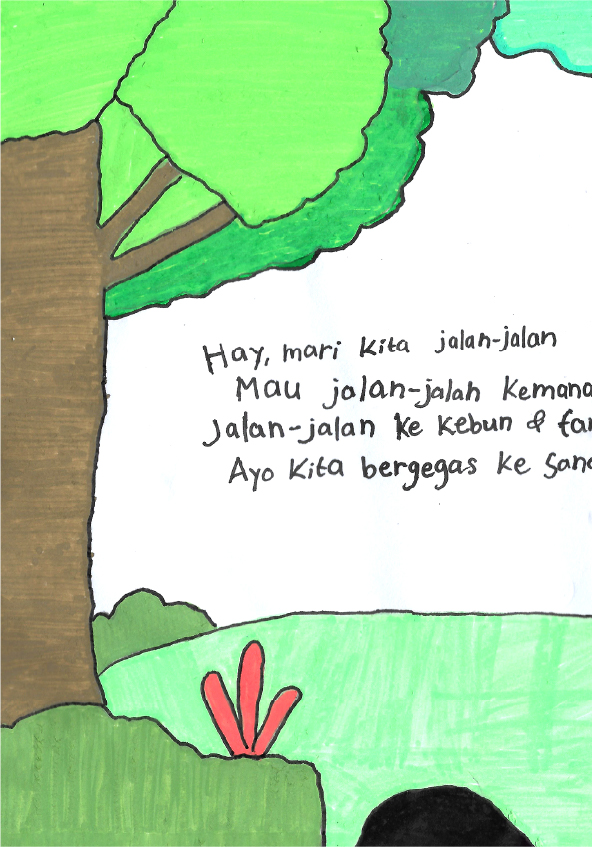 Hay, mari kita jalan-jalan
Mau jalan-jalah kemana
Jalan-jalan ke kebun &
Ayo kita bergegas ke